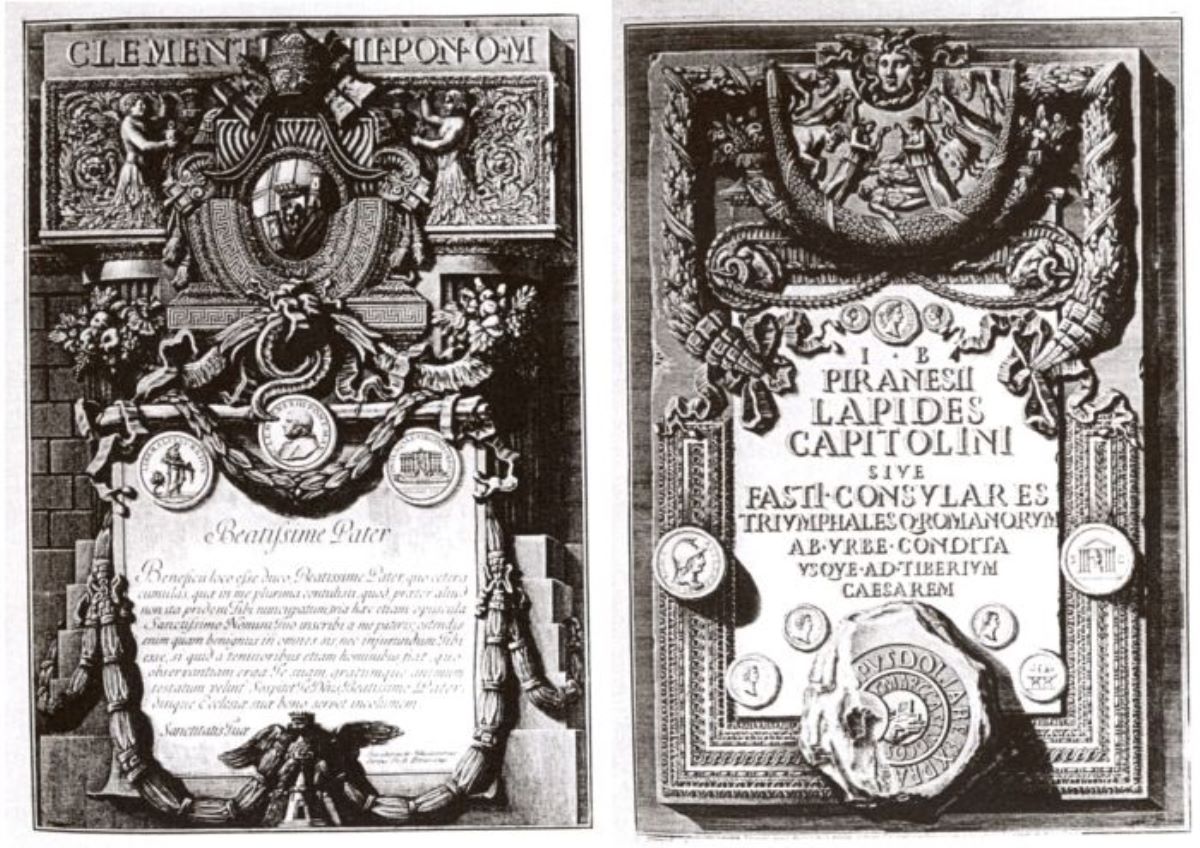 CLEMENTI III·PON·O·M
Beatissime Pater
Beneficii loco esse duco, Beatissime Pater, quo cetera
cumulas, quæ in me plurima contulisti, quod, præter aliud
non ita pridem Tibi nuncupatum, tria hæc etiam opuscula
Sanctissimo Nomini Tuo inscribi a me pateris; ostendis
enim quam benignus in omnes sis, nec injucundum Tibi
esse, si quid a tenuioribus etiam hominibus fiat, quo
observantiam erga Te suam, gratumque animum
testatum velint. Sospitet Te Deus, Beatissime Pater,
diuque Ecclesiæ suæ bono servet incolumem.
Sanctitatis Tuæ
I · B
PIRANESII
LAPIDES
CAPITOLINI
SIVE
FASTI·CONSVLARES
TRIVMPHALESQ·ROMANORVM
AB·VRBE·CONDITA
VSQVE·AD·TIBERIVM
CAESAREM
S C